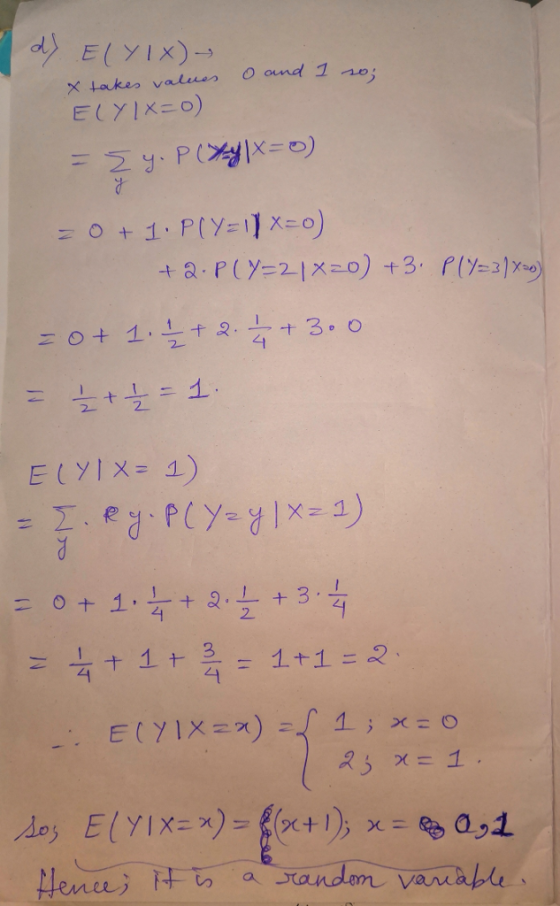 d) E(Y|X) →
X takes values 0 and 1 so;
E(Y|X=0)
= Σ_y y. P(Y=y|X=0)
= 0 + 1. P(Y=1|X=0)
+ 2. P(Y=2|X=0) + 3. P(Y=3|X=0)
= 0 + 1. 1/2 + 2. 1/4 + 3. 0
= 1/2 + 1/2 = 1.
E(Y|X= 1)
= Σ_y . y. P(Y=y|X=1)
= 0 + 1. 1/4 + 2. 1/2 + 3. 1/4
= 1/4 + 1 + 3/4 = 1+1 = 2.
∴ E(Y|X=x) = { 1 ; x=0
2 ; x= 1 .
so; E(Y|X=x) = (x+1); x= 0,1
Hence; it is a random variable.